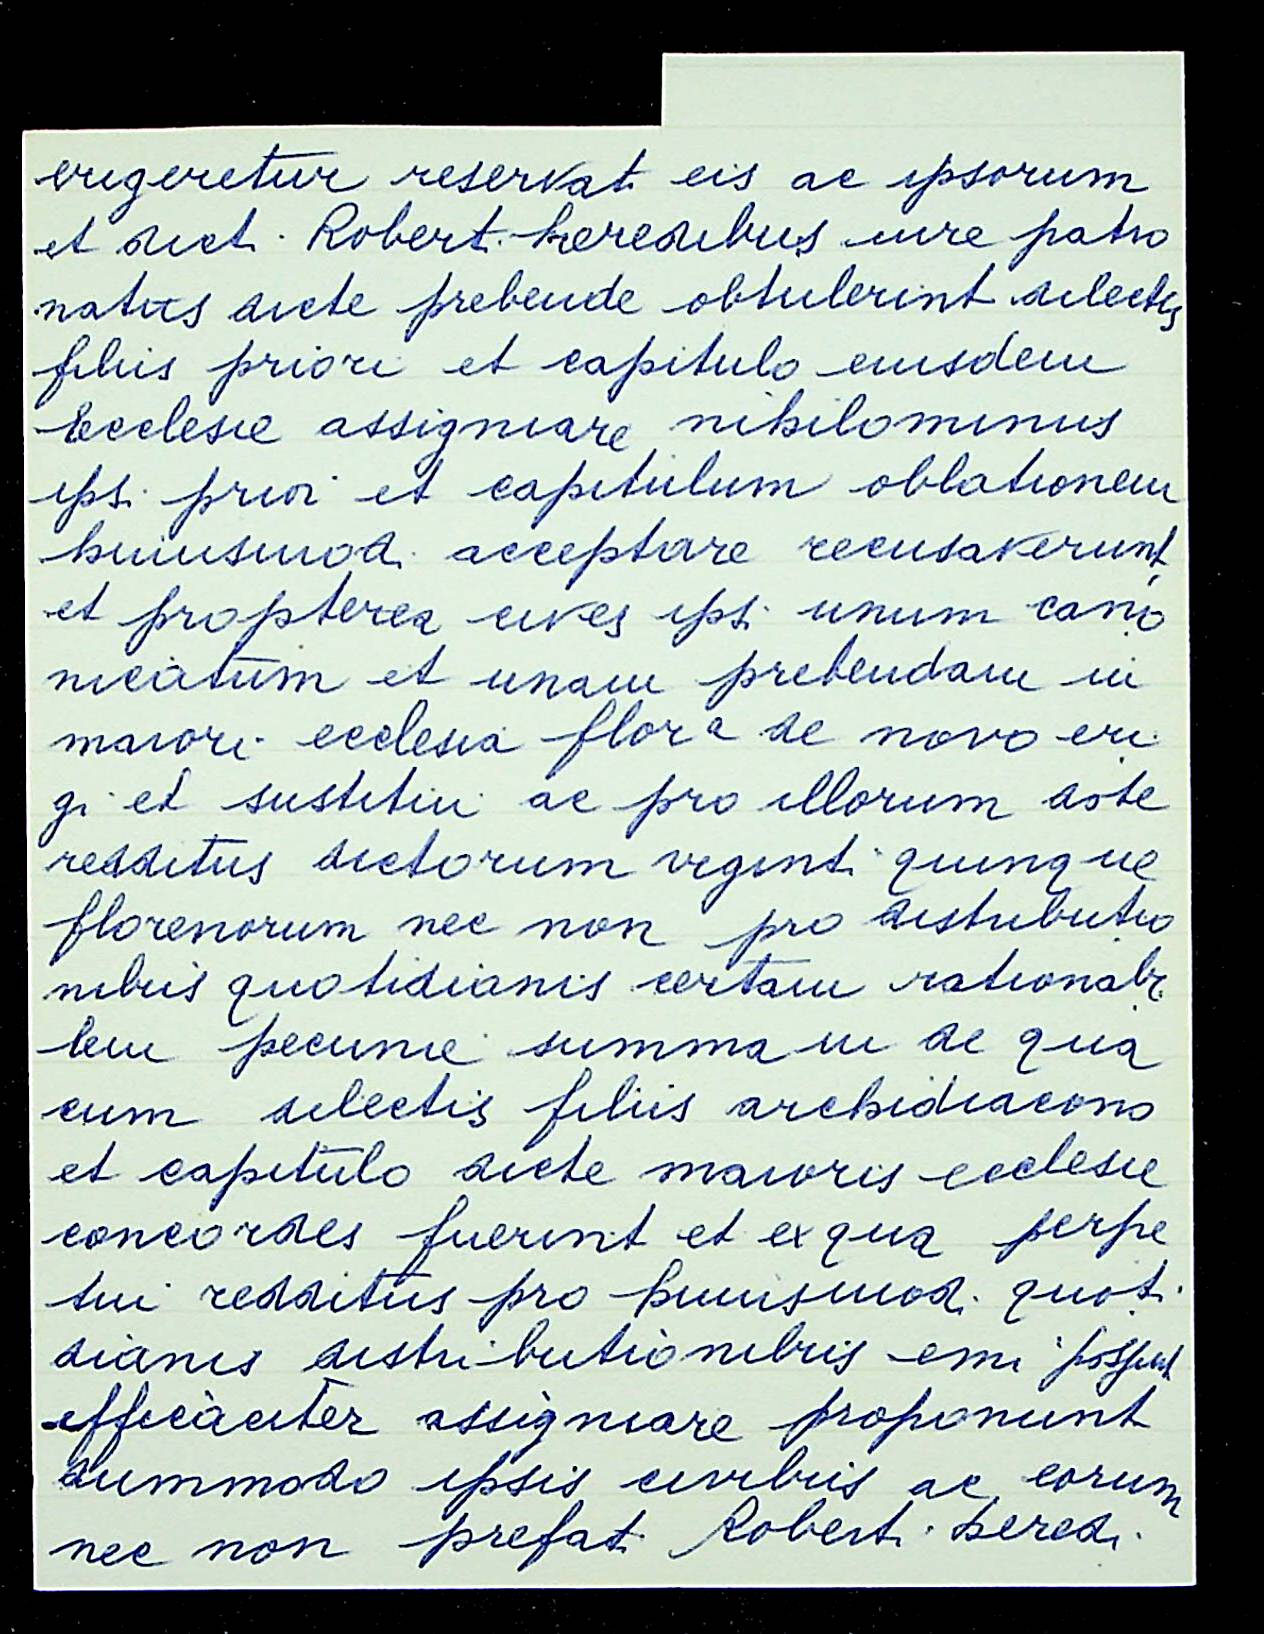 erigeretur reservat. eis ac ipsorum
et dict. Robert. heredibus iure patro
natus dicte prebende obtulerint dilectis
filiis priori et capitulo eiusdem
Ecclesie assignare nihilominus
ipsi prior et capitulum oblationem
huiusmodi acceptare recusaverunt,
et propterea cives ipsi unum cano
nicatum et unam prebendam in
maiori ecclesia flor.a de novo eri
gi et sustitui ac pro illorum dote
redditus dictorum viginti quinque
florenorum nec non pro distributio
nibus quotidianis certam rationabi
lem pecunie summam de qua
cum dilectis filiis archidiacono
et capitulo dicte maioris ecclesie
concordes fuerint et ex qua perpe
tui redditus pro huiusmodi quoti
dianis distributionibus emi possent
efficaciter assignare proponunt
dummodo ipsis civibus ac eorum
nec non prefat. Robert. heredi.